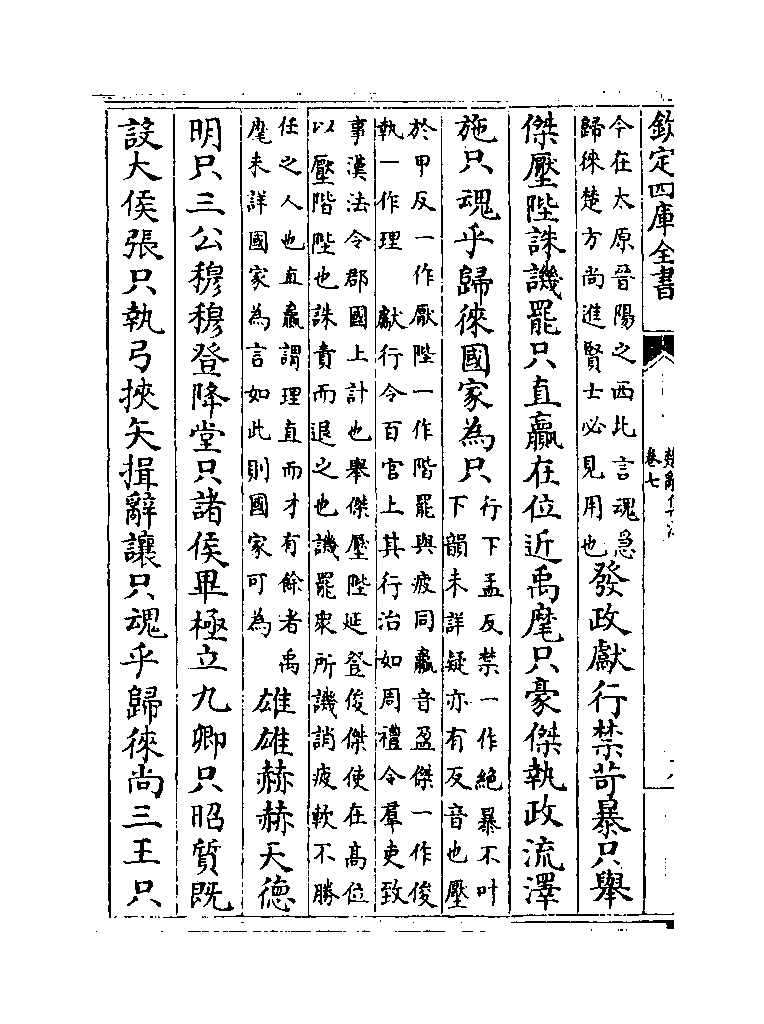 欽定四庫全書
卷七
今在太原晉陽之西此言魂急
歸徠楚方尚進賢士必見用也
發政獻行禁苛暴只舉
傑壓陛誅譏罷只直贏在位近禹麾只豪傑執政流澤
施只魂乎歸徠國家為只
行下孟反禁一作絶暴不叶
下韻未詳疑亦有反音也壓
於甲反一作厭陛一作階罷與疲同贏音盈傑一作俊
執一作理 獻行令百官上其行治如周禮令羣吏致
事漢法令郡國上計也舉傑壓陛延登俊傑使在高位
以壓階陛也誅責而退之也譏罷衆所譏誚疲軟不勝
任之人也直贏謂理直而才有餘者禹
麾未詳國家為言如此則國家可為
雄雄赫赫天德
明只三公穆穆登降堂只諸侯畢極立九卿只昭質既
設大侯張只執弓挾矢揖辭讓只魂乎歸徠尚三王只